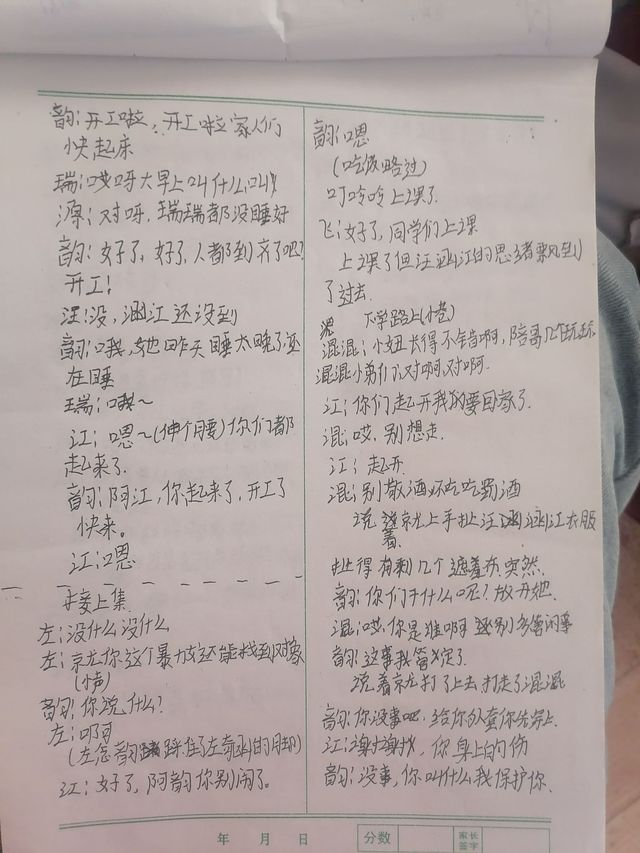 韵:开工啦,开工啦家人们
快起床
瑞:哎呀大早上叫什么叫
源:对呀,瑞瑞都没睡好
韵:好了,好了,人都到齐了吧?
开工!
汪:没,涵江还没到
韵:哦,她昨天睡太晚了还
在睡
瑞:哦~
江:嗯~(伸个腰)你们都
起来了.
韵:阿江,你起来了,开工了
快来。
江:嗯
接上集
左:没什么没什么
左:京尤你这个暴力女还能找到对象
(小声)
韵:你说什么?
左:啊
(左念韵踩住了左奇函的脚)
江:好了,阿韵你别闹了.
韵:嗯
(吃饭略过)
叮呤呤上课了.
飞:好了,同学们上课
上课了但汪涵江的思绪乘风到
了过去.
放学路上(小巷)
混混:小妞长得不错啊,陪哥几个玩玩
混混小弟们:对啊,对啊.
江:你们起开我的要回家了.
混:哎,别想走.
江:走开
混:别敬酒不吃吃罚酒
说着 京尤上手扯汪涵江衣服
扯得有剩几个遮羞布.突然,
韵:你们干什么呢?放开她.
混:哎,你是谁啊 别多管闲事
韵:这事我管定了.
说着京尤打了上去,打走了混混
韵:你没事吧,给你外套你先穿上.
江:谢谢,你身上的伤
韵:没事,你叫什么我保护你.
年 月 日
分数
家长
签字